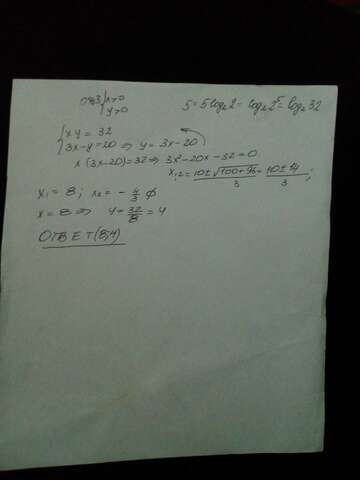 ОДЗ { x>0
y>0
5 = 5log₂2 = log₂2⁵ = log₂32
{ xy = 32
3x-y=20 ⇒ y = 3x-20
x (3x-20)=32 ⇒ 3x²-20x-32=0
x₁,₂ = (10±√(100+96))/3 = (10±14)/3 ;
x₁ = 8 ; x₂ = -4/3 ∅
x = 8 ⇒ y = 32/8 = 4
ОТВЕТ (8;4)